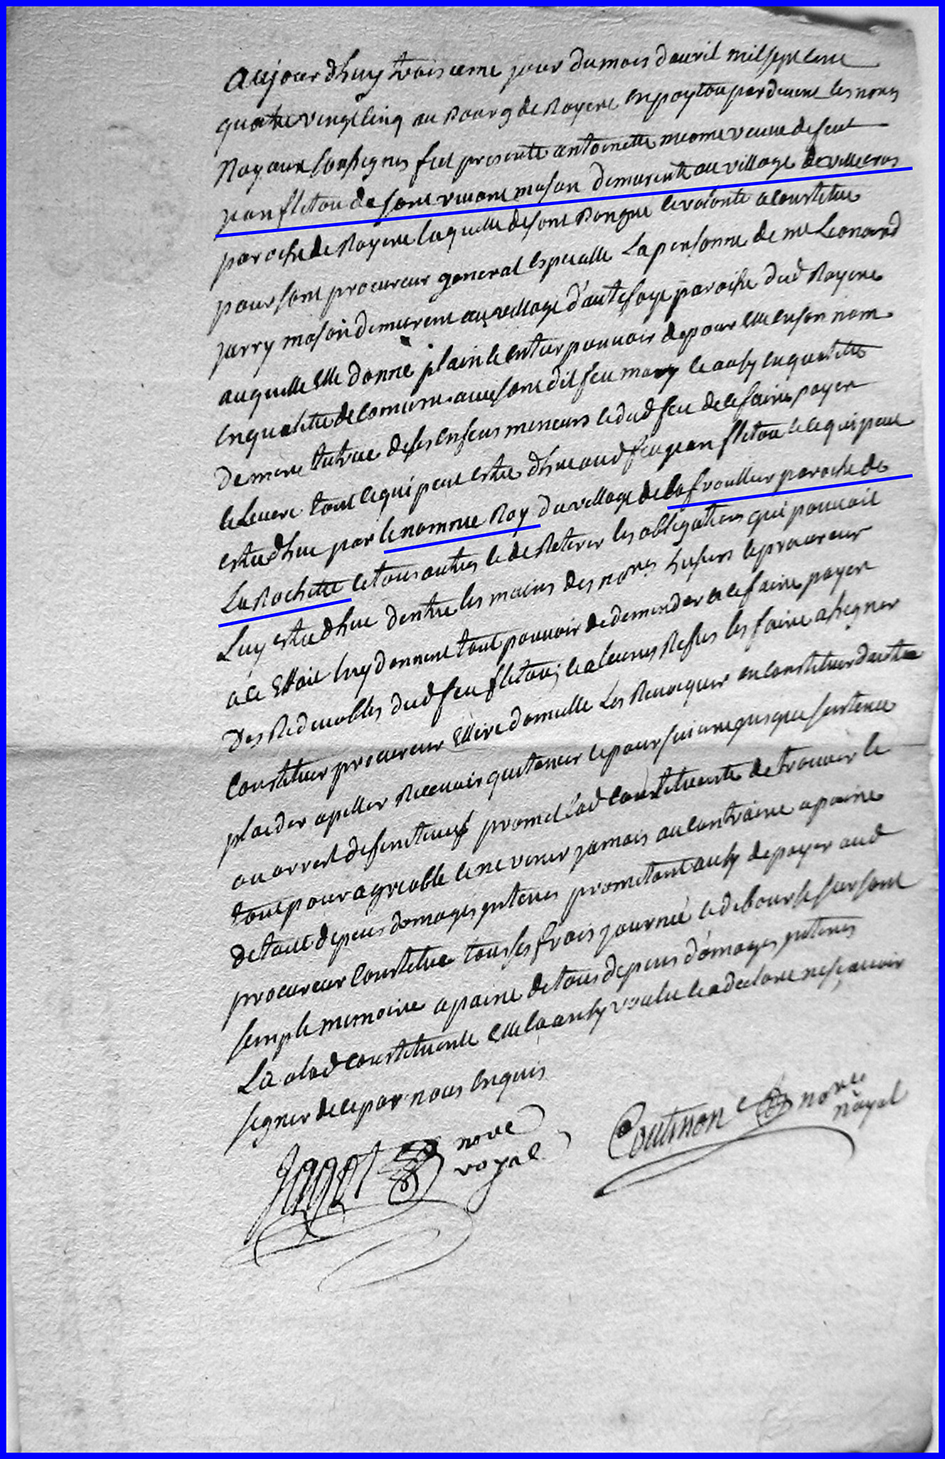 aujourdhuy troisieme jour du mois davril mil sept cent
quatre vingt cinq au Bourg de Royere en poytou par devant les nores
Royaux sousignes fut presente antoinette veuve de feut
jean flitou de sont vivant mason demurente au village de villecros
paroche de Royere laquelle de sont Bon gré le volonté a constitue
pour sont procureur general especialle La personne de me Leonard
jarry mason demurent au village d'autefaye paroche dud Royere
auquelle Elle donne plain le entier pouvoir de pour elle en son nom
en qualitté de comune avec sont dit feu mary le ausy en qualitté
de mere tutrice de ses enfens meneurs dud feu de ce faire payer
le Levere tout ce qui peut estre dhue aud feu jean flitou le ce qui peut
estre dhue par le nomme Roy du village de la froullier paroche de
La Rochette le tous autres le de Retirer les obligations qui pouvoit
Luy estre dhue dentre les mains des nores le procureur
a ce Effait luy donnent tout pouvoir de demender ce faire payer
des Redevables dud feu flitou le a leurs Refus les faire asigner
Constituer procureur Elire domicille Les Revocquer en constituer dautre
plaider apeller Recevoir quitencer le poursuivre jusques sentence
ou arrest definiteuf promet lad constituente de trouver le
tout pour agreable le ne venir jamais au contraire a paine
de tout depens domages interes promettant ausy de payer aud
procureur constitue tous ses frais journee le debourse sur sont
semple memoire a paine de tous depens domages interes
La alad constituente elle la ausy voulu le a declare ne scavoir
signer de ce par nous enquis
Jagot nore royal
Coutinon nore royal